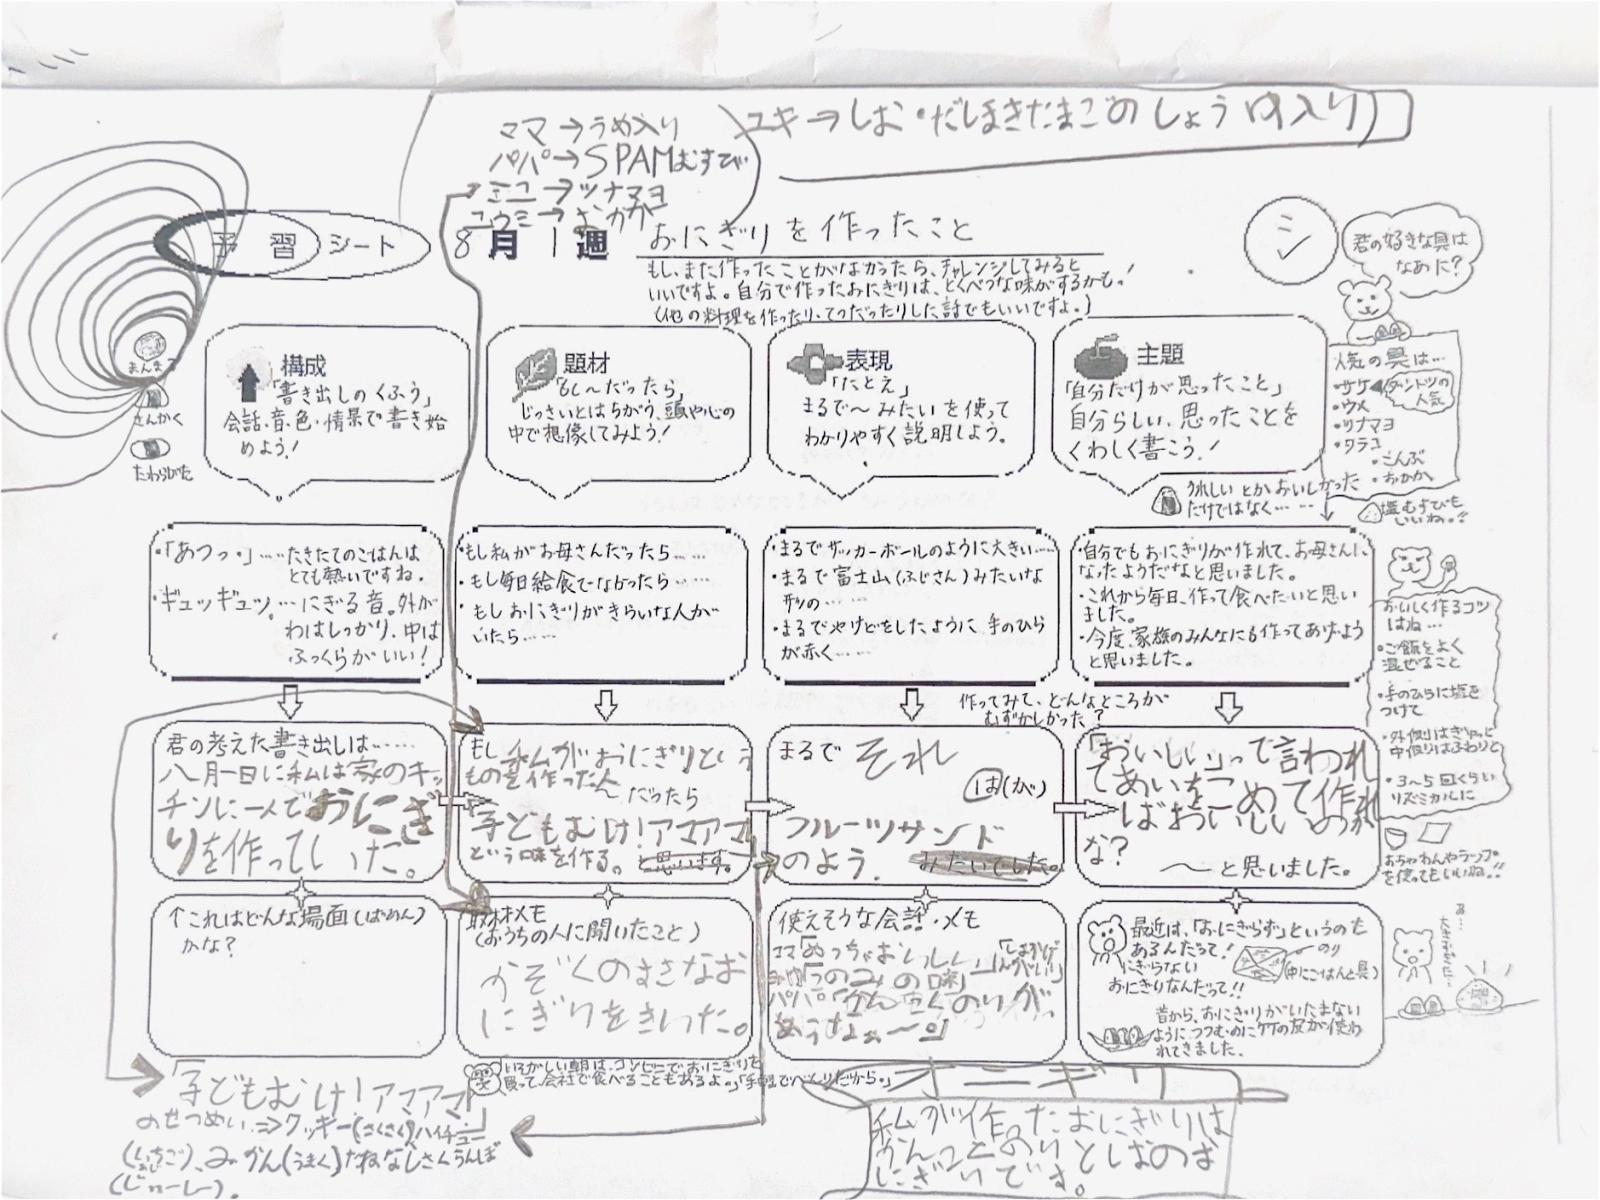 ママ→うめ入り
パパ→SPAMむすび
ミユ→ツナマヨ
ユウミ→おかか
ユキ→しお・だしまきたまごのしょうゆ入り
予習シート
8月1週
おにぎりを作ったこと
もし、また作ったことがなかったら、チャレンジしてみると
いいですよ。自分で作ったおにぎりは、とくべつな味がするかも!
(他の料理を作ったり、てつだったりした話でもいいですよ。)
シ
君の好きな具は
なあに?
人気の具は…
・サケ
ダントツの
人気
・ウメ
・ツナマヨ
・タラコ
・こんぶ
・おかか
塩むすびも
いいね。!!
まんまる
さんかく
たわらがた
構成
「書き出しのくふう」
会話・音・色・情景で書き始
めよう!
題材
「もし~だったら」
じっさいとはちがう、頭や心の
中で想像してみよう!
表現
「たとえ」
まるで~みたいを使って
わかりやすく説明しよう。
主題
「自分だけが思ったこと」
自分らしい、思ったことを
くわしく書こう!
うれしいとかおいしかった
だけではなく……
・「あつっ」……たきたてのごはんは
とても熱いですね。
・ギュッギュッ。…にぎる音。外が
わはしっかり、中は
ふっくらがいい!
・もし私がお母さんだったら……
・もし毎日給食でなかったら……
・もしおにぎりがきらいな人が
いたら……
・まるでサッカーボールのように大きい……
・まるで富士山(ふじさん)みたいな
形の……
・まるでやけどをしたように、手のひら
が赤く……
・自分でもおにぎりが作れて、お母さんに
なったようだなと思いました。
・これから毎日、作って食べたいと思い
ました。
・今度、家族のみんなにも作ってあげよう
と思いました。
おいしく作るコツ
はね…
・ご飯をよく
混ぜること
・手のひらに塩を
つけて
・外側はぎゅっと
中側はふわりと
・3~5回くらい
リズミカルに
おちゃわんやラップ
を使ってもいいね。!!
作ってみて、どんなところが
むずかしかった?
君の考えた書き出しは……
八月一日に私は家のキッ
チンに一人でおにぎ
りを作っていた。
もし私がおにぎりという
ものを作ったん
だったら
「子どもむけ!アマアマ」
という味を作る。と思います。
まるでそれ
は(が)
フルーツサンド
のよう。みたいでした。
「おいしい」って言われ
てあいをこめて作れ
ばおいしいのか
な?
~と思いました。
↑これはどんな場面(ばめん)
かな?
取材メモ
(おうちの人に聞いたこと)
かぞくのすきなお
にぎりをきいた。
使えそうな会話・メモ
ママ「めっちゃおいしい」
最近は、「おにぎらず」というのも
あるんだって!
にぎらない
おにぎりなんだって!!
のり
(中にごはんと具)
昔から、おにぎりがいたまない
ようにつつむのに竹の皮が使わ
れてきました。
いそがしい朝は、コンビニでおにぎりを
買って会社で食べることもあるよ。「手軽でべんりだから。」
「子どもむけ!アマアマ!」
のせつめい⇒クッキー(さくさく)ハイチュー
(いちご)、みかん(うまく)たねなしさくらんぼ
(じゅーしー)。
オニギリ
私が作ったおにぎりは